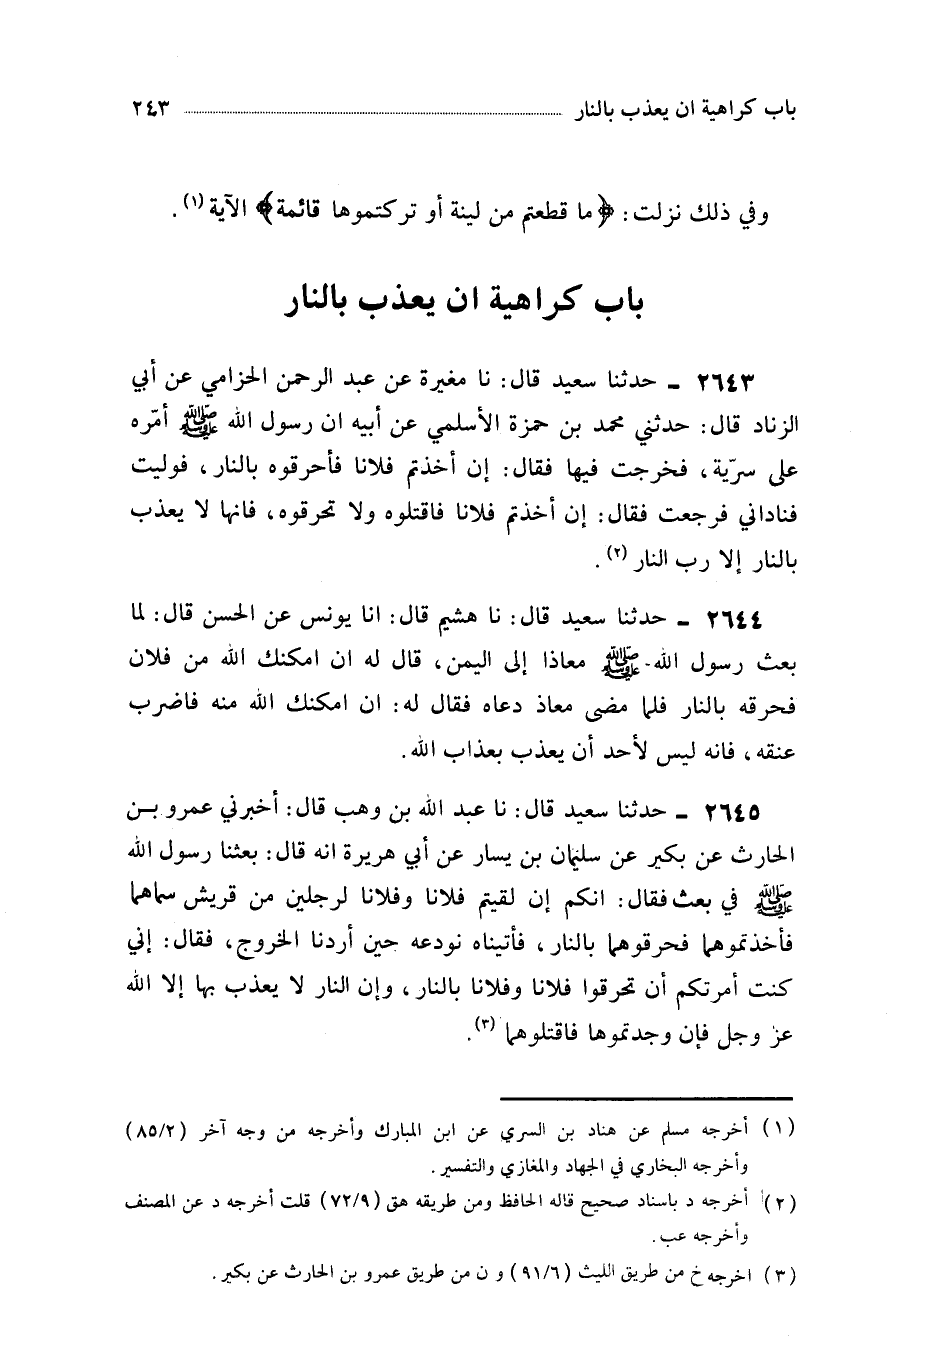 باب كراهية ان يعذب بالنار ........ ٢٤٣
وفي ذلك نزلت: ﴿ما قطعتم من لينة أو تركتموها قائمة﴾ الآية (١).
باب كراهية ان يعذب بالنار
٢٦٤٣ - حدثنا سعيد قال: نا مغيرة عن عبد الرحمن الحزامي عن أبي
الزناد قال: حدثني محمد بن حمزة الأسلمي عن أبيه ان رسول الله ﷺ أمّره
على سرّية، فخرجت فيها فقال: إن أخذتم فلانا فأحرقوه بالنار، فوليت
فناداني فرجعت فقال: إن أخذتم فلانا فاقتلوه ولا تحرقوه، فانها لا يعذب
بالنار إلا رب النار (٢).
٢٦٤٤ - حدثنا سعيد قال: نا هشيم قال: انا يونس عن الحسن قال: لما
بعث رسول الله ﷺ معاذا إلى اليمن، قال له ان امكنك الله من فلان
فحرقه بالنار فلما مضى معاذ دعاه فقال له: ان امكنك الله منه فاضرب
عنقه، فانه ليس لأحد أن يعذب بعذاب الله.
٢٦٤٥ - حدثنا سعيد قال: نا عبد الله بن وهب قال: أخبرني عمرو بن
الحارث عن بكير عن سليمان بن يسار عن أبي هريرة انه قال: بعثنا رسول الله
ﷺ في بعث فقال: انكم إن لقيتم فلانا وفلانا لرجلين من قريش سماهما
فأخذتموهما فحرقوهما بالنار، فأتيناه نودعه حين أردنا الخروج، فقال: إني
كنت أمرتكم أن تحرقوا فلانا وفلانا بالنار، وإن النار لا يعذب بها إلا الله
عز وجل فإن وجدتموها فاقتلوهما (٣).
(١) أخرجه مسلم عن هناد بن السري عن ابن المبارك وأخرجه من وجه آخر (٨٥/٢)
وأخرجه البخاري في الجهاد والمغازي والتفسير.
(٢) أخرجه د باسناد صحيح قاله الحافظ ومن طريقه هق (٧٢/٩) قلت أخرجه د عن المصنف
وأخرجه عب.
(٣) اخرجه خ من طريق الليث (٩١/٦) و ن من طريق عمرو بن الحارث عن بكير.